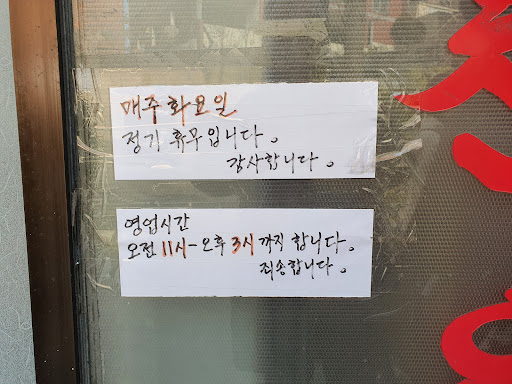 매주 화요일
정기 휴무입니다.
감사합니다.
영업시간
오전 11시-오후 3시 까지 합니다.
죄송합니다.